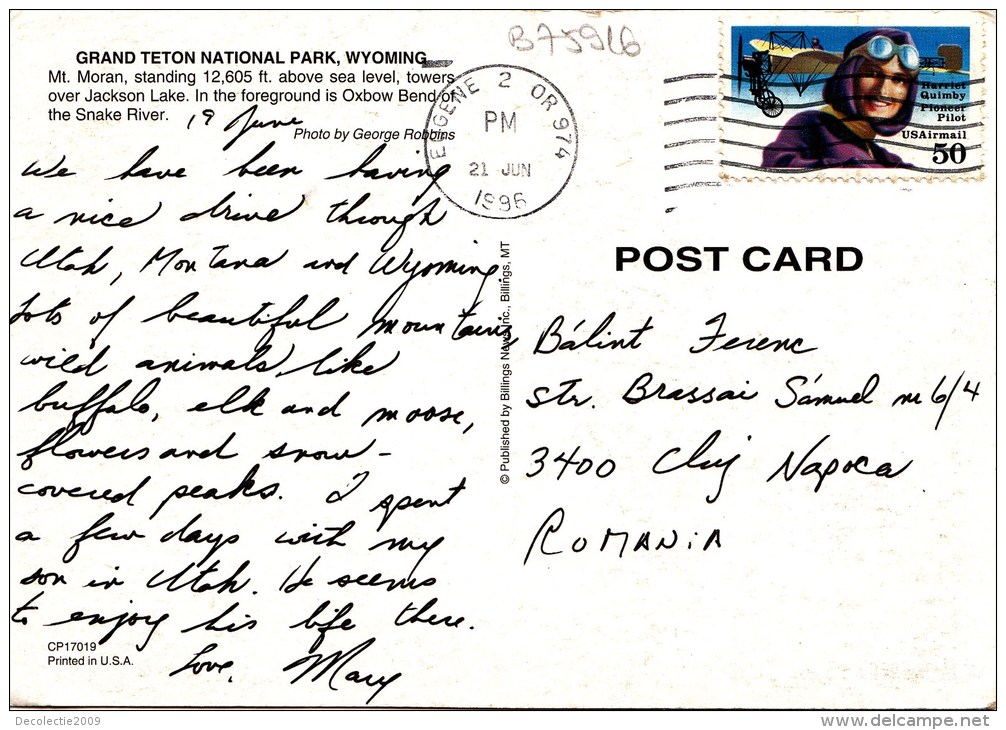 B75916
GRAND TETON NATIONAL PARK, WYOMING
Mt. Moran, standing 12,605 ft. above sea level, towers
over Jackson Lake. In the foreground is Oxbow Bend of
the Snake River.
Photo by George Robbins
19 June
We have been having
a nice drive through
Utah, Montana and Wyoming
Lots of beautiful mountains
wild animals, like
buffalo, elk and moose,
flowers and snow-
covered peaks. I spent
a few days with my
son in Utah. He seems
to enjoy his life there.
Love, Mary
CP17019
Printed in U.S.A.
© Published by Billings News Inc., Billings, MT
EUGENE 2 OR 974
PM
21 JUN
1996
Harriet
Quimby
Pioneer
Pilot
USAirmail
50
POST CARD
Bálint Ferenc
str. Brassai Sámuel nr 6/4
3400 Cluj Napoca
ROMANiA
Decolectie2009
www.delcampe.net